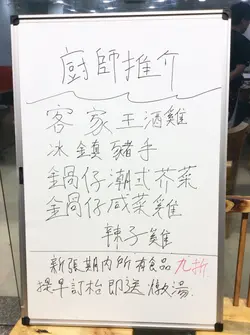 廚師推介
客家王酒雞
冰鎮豬手
鍋仔潮式芥菜
鍋仔咸菜雞
辣子雞
新張期內所有食品九折
提早訂枱即送燉湯